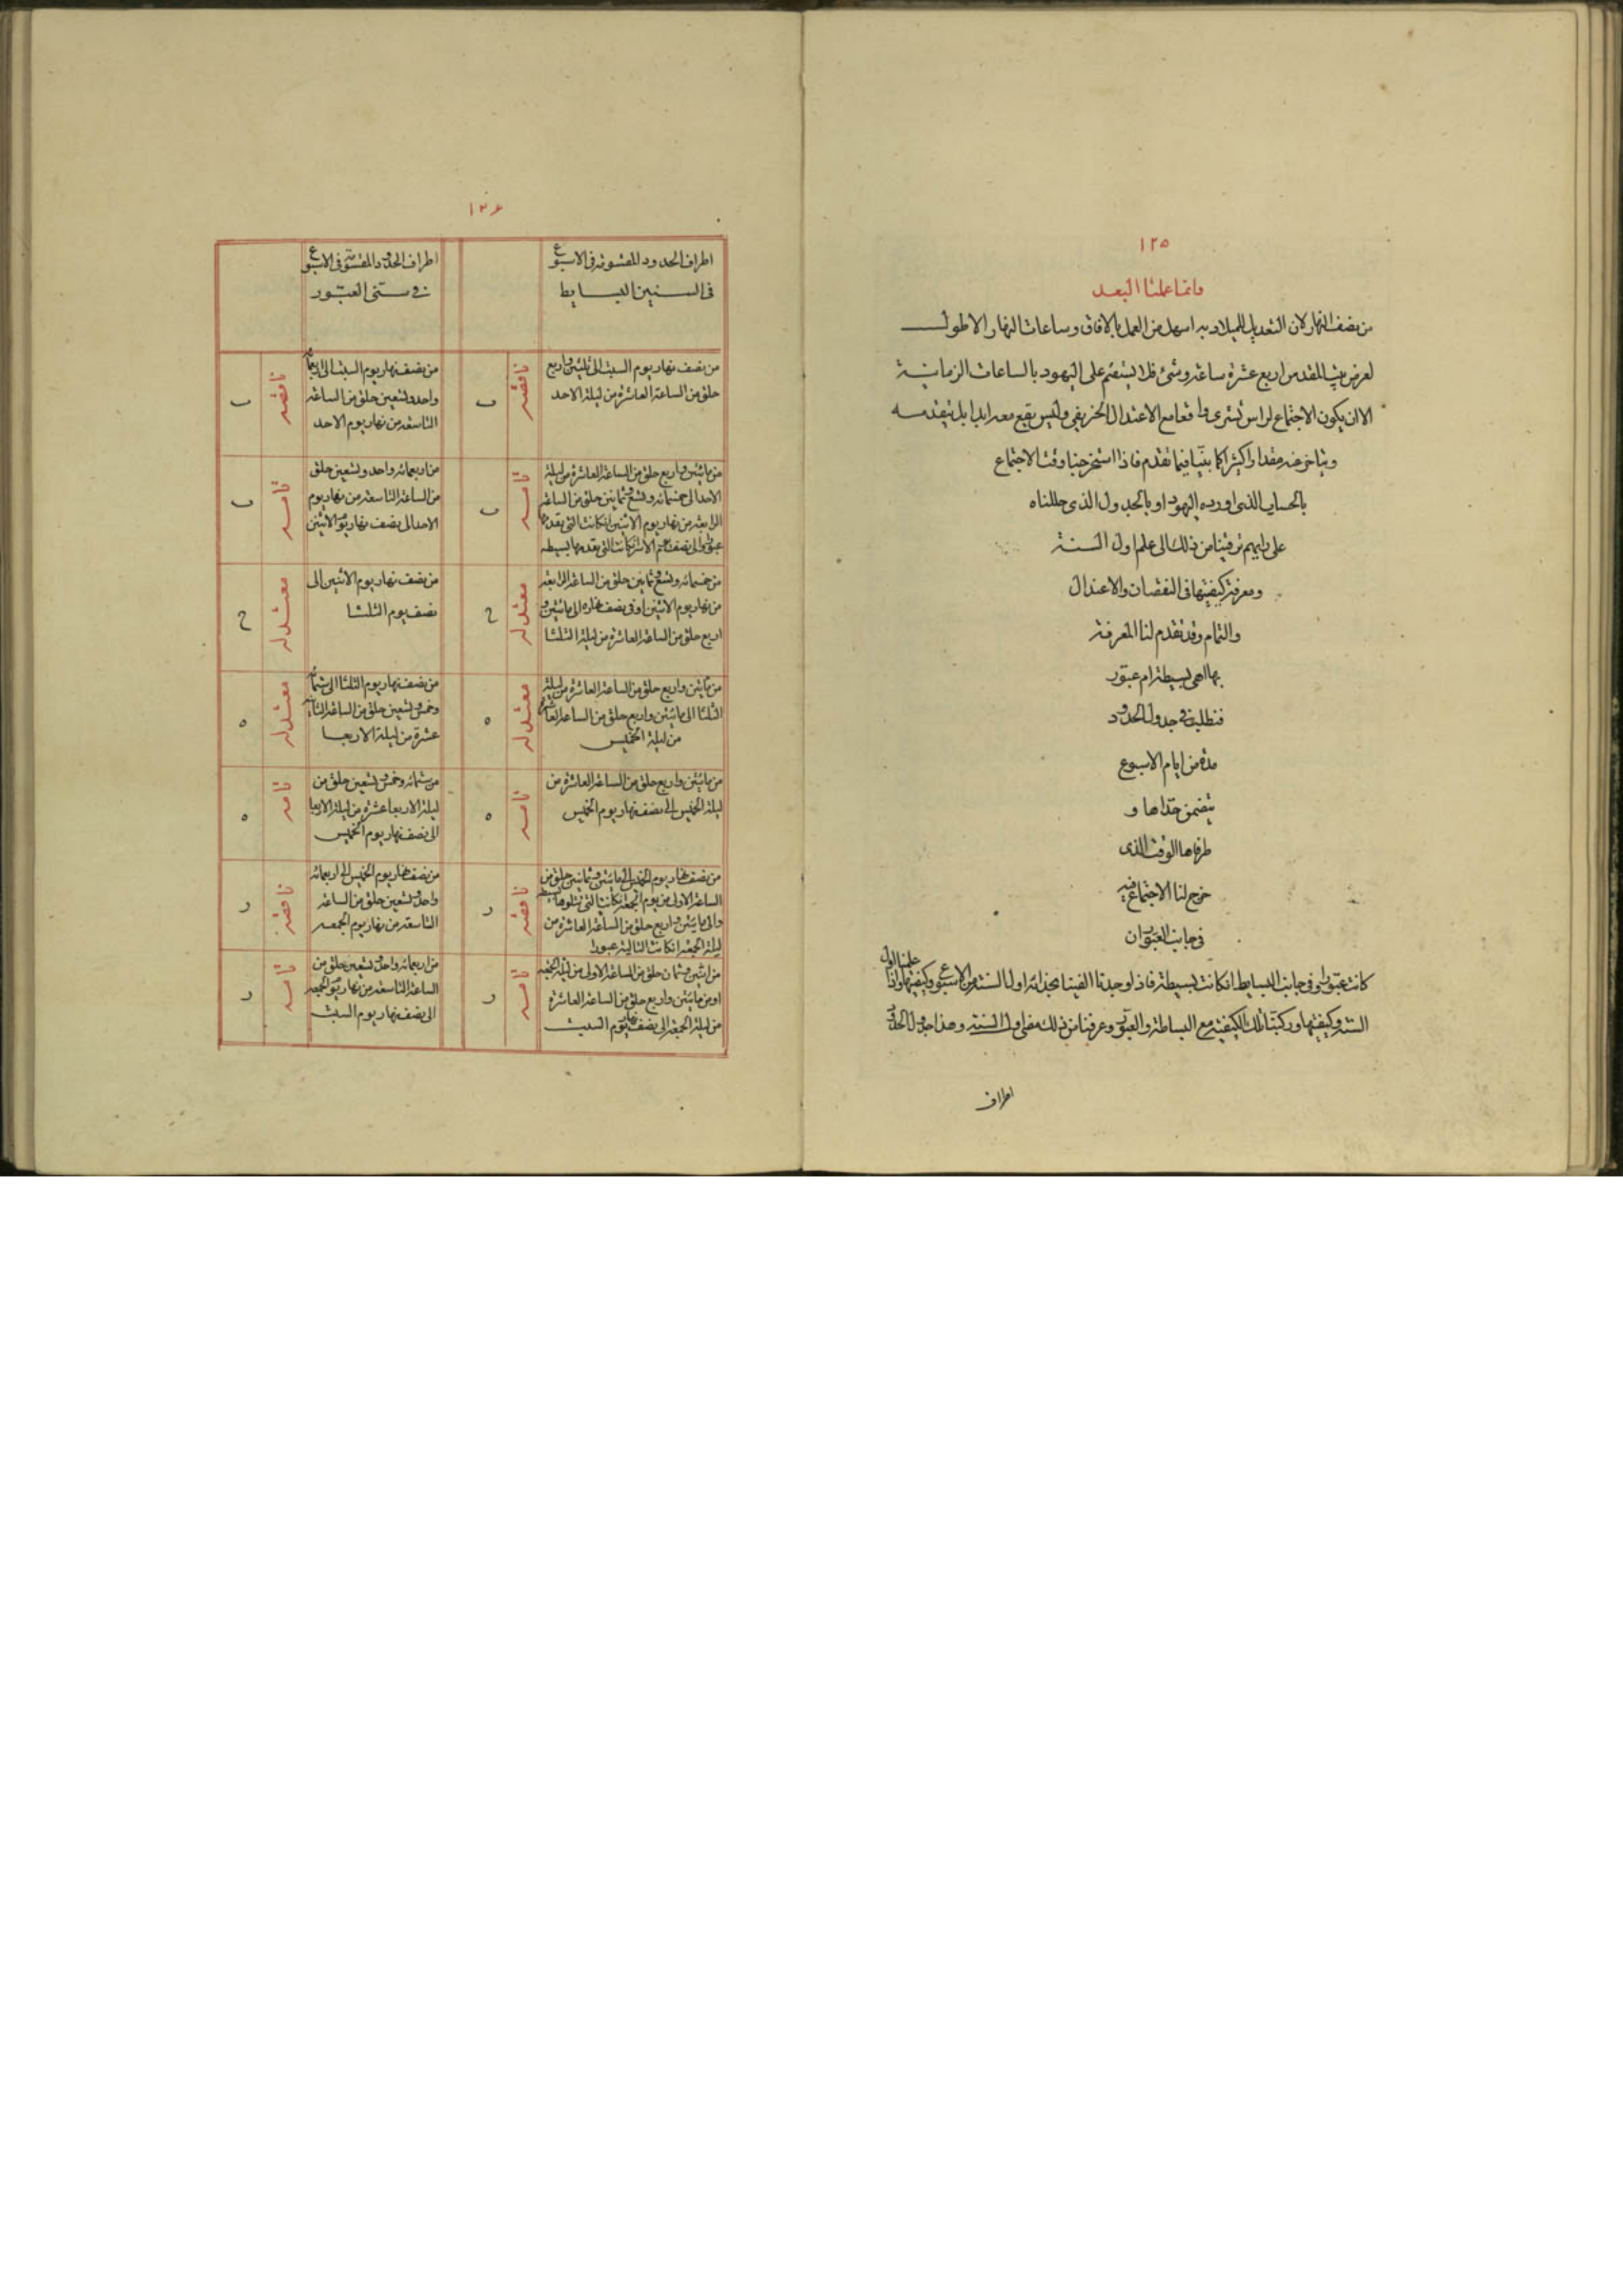 ١٢٥
وانما علمنا البعد
من نصف النهار لان التعديل للميلاد به اسهل من العمل بالافاق وساعات النهار الاطول
لعرض بيت المقدس اربع عشرة ساعة وشئ فلا يستقيم على اليهود بالساعات الزمانية
الا ان يكون الاجتماع لراس تشرى واقعا مع الاعتدال الخريفى وليس يقع معه ابدا بل يتقدمه
ويتاخر عنه مقدارا كثيرا كما بينا فيما تقدم فاذا استخرجنا وقت الاجتماع
بالحساب الذى اورده اليهود او بالجدول الذى حللناه
على رايهم ترقينا من ذلك الى علم اول السنة
ومعرفة كيفيتها فى النقصان والاعتدال
والتمام وقد تقدم لنا المعرفة
بها اهى بسيطة ام عبور
فنطلب فى جدول الحدود
مدة من ايام الاسبوع
يتضمن حداها و
طرفاها الوقت الذى
خرج لنا الاجتماع فيه
فى جانب العبور ان
كانت عبورا وفى جانب البسايط ان كانت بسيطة فاذا وجدناا الفينا بحذائه اول السنة من الاسبوع وكيفيتها واذا علمنا اول
السنة وكيفيتها وركبنا تلك الكيفية مع البساطة والعبور وعرفنا من ذلك اول السنة وهذا جدول الحدود
اطراف
١٢٦
اطراف الحدود المقسومة فى الاسبوع
فى السنين البسايط
اطراف الحدود المقسومة فى الاسبوع
فى سنى العبور
من نصف نهار يوم السبت الى مئتين واربع
حلق من الساعة العاشرة من ليلة الاحد
ناقصه
ب
من نصف نهار يوم السبت الى اربعمائة
واحد وتسعين حلق من الساعة
التاسعة من نهار يوم الاحد
ناقصه
ب
من مائتين واربع حلق من الساعة العاشرة من ليلة
الاحد الى خمسمائة وتسع وثمانين حلق من الساعة
الرابعة من نهار يوم الاثنين ان كانت التى تقدمها
عبورا والى نصف الاثنين ان كانت التى تقدمها بسيطه
تامه
ب
من اربعمائه واحد وتسعين حلق
من الساعة التاسعة من نهار يوم
الاحد الى نصف نهار يوم الاثنين
تامه
ب
من خمسمائه وتسع وثمانين حلق من الساعة الرابعة
من نهار يوم الاثنين او فى نصف نهاره الى مائتين و
اربع حلق من الساعة العاشرة من ليلة الثلثا
معتدله
ج
من نصف نهار يوم الاثنين الى
نصف يوم الثلثا
معتدله
ج
من مائتين واربع حلق من الساعة العاشرة من ليلة
الثلثا الى مائتين واربع حلق من الساعة العاشرة
من ليلة الخميس
معتدله
ه
من نصف نهار يوم الثلثا الى ستمائة
وخمس وتسعين حلق من الساعة الثانية
عشرة من ليلة الاربعا
معتدله
ه
من مائتين واربع حلق من الساعة العاشرة من
ليلة الخميس الى نصف نهار يوم الخميس
تامه
ه
من ستمائه وخمس وتسعين حلق من
ليلة الاربعا عشرة من ليلة الاربعا
الى نصف نهار يوم الخميس
تامه
ه
من نصف نهار يوم الخميس الى مائتين وثمانين حلق من
الساعة الاولى من يوم الجمعة ان كانت التى تتلوها بسيطه
والى مائتين واربع حلق من الساعة العاشرة من
ليلة الجمعة ان كانت التالية عبورا
ناقصه
ز
من نصف نهار يوم الخميس الى اربعمائه
واحد وتسعين حلق من الساعة
التاسعة من نهار يوم الجمعه
ناقصه
ز
من اثنين وثمان حلق من الساعة الاولى من ليلة الجمعه
او من مائتين واربع حلق من الساعة العاشرة
من ليلة الجمعة الى نصف نهار يوم السبت
تامه
ز
من اربعمائه واحد وتسعين حلق من
الساعة التاسعة من نهار يوم الجمعه
الى نصف نهار يوم السبت
تامه
ز